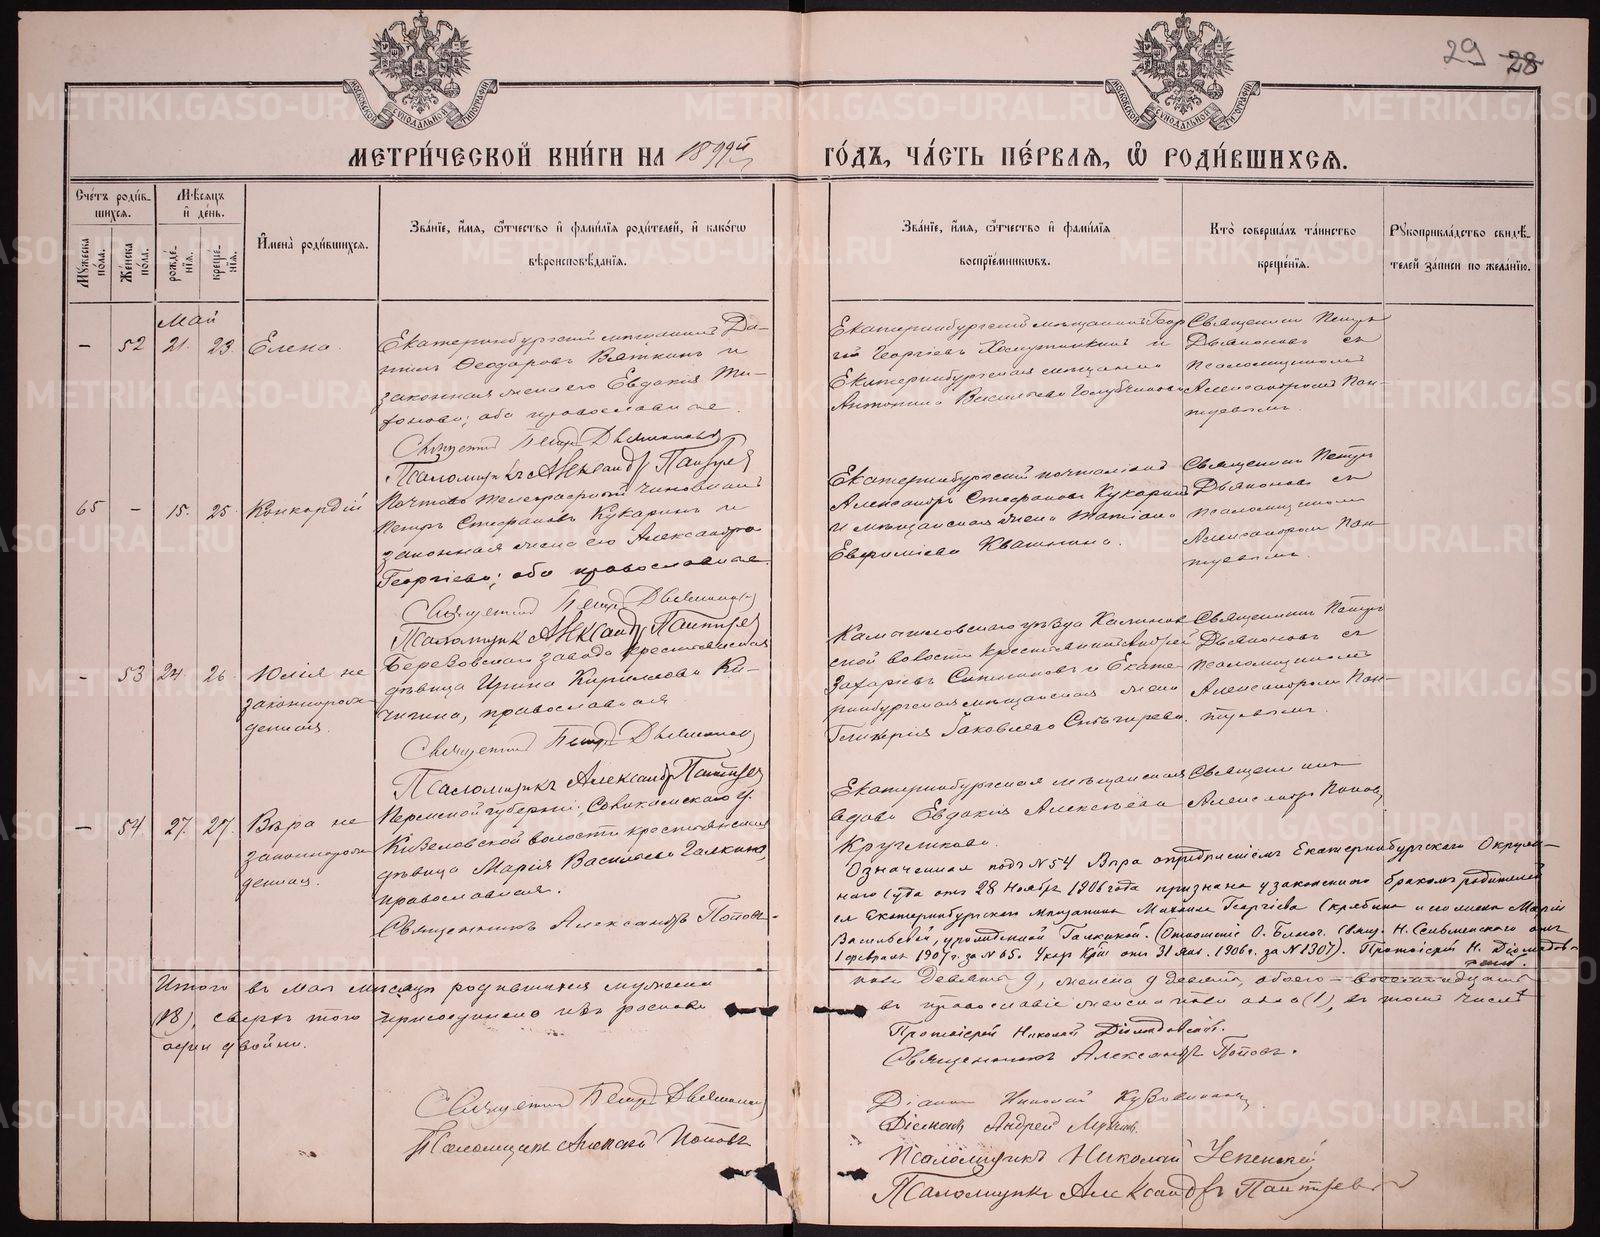 29 28
МОСКОВСКОЙ СѴНОДАЛЬНОЙ ТИПОГРАФІИ
МОСКОВСКОЙ СѴНОДАЛЬНОЙ ТИПОГРАФІИ
МЕТРИ́ЧЕСКОЙ КНИ́ГИ НА 1899й
ГО́ДЪ, ЧА́СТЬ ПЕ́РВАЯ, Ѡ҆ РОДИ́ВШИХСЯ.
Сче́тъ роди́в-
шихся.
Му́жеска по́ла.
Же́нска по́ла.
Мѣ́сяцъ
и҆ де́нь.
рожде́нія.
креще́нія.
И҆мена̀ роди́вшихся.
Зва́ніе, и҆́мя, ѻ҆́тчество и҆ фами́лія роди́телей, и҆ како́гѡ
вѣроисповѣ́данія.
Зва́ніе, и҆́мя, ѻ҆́тчество и҆ фами́лія
воспріе́мниковъ.
Кто̀ соверша́лъ та́инство
креще́нія.
Рꙋкоприкла́дство свидѣ́-
телей за́писи по жела́нію.
Май
— 52 21. 23. Елена.
Екатеринбургскій мѣщанинъ Да-
нилъ Ѳеодоровъ Вяткинъ и
законная жена его Евдокія Ти-
; оба православные.
Священникъ Петръ Дьяконовъ
Псаломщикъ Александръ
Екатеринбургскій мѣщанинъ Геор-
гій Георгіевъ и
Екатеринбургская мѣщанка
Антонина Васильева
Священникъ Петръ
Дьяконовъ съ
псаломщикомъ
Александромъ

65 — 15. 25. Конкордій
Почтово-Телеграфный чиновникъ
Петръ Стефановъ Кукаринъ и
законная жена его Александра
Георгіева; оба православные.
Священникъ Петръ Дьяконовъ
Псаломщикъ Александръ
Екатеринбургскій почталіонъ
Александръ Стефановъ Кукаринъ
и мѣщанская жена Татіана
Евфиміева Квашнина.
Священникъ Петръ
Дьяконовъ съ
псаломщикомъ
Александромъ

— 53 24. 26. Юлія не
законнорож-
денная.
Березовскаго завода крестьянская
дѣвица Ирина Кириллова Ки-
чигина, православная
Священникъ Петръ Дьяконовъ
Псаломщикъ Александръ
Камышловскаго уѣзда Калинов-
ской волости крестьянинъ Андрей
Захаріевъ и Екате-
ринбургская мѣщанская жена
Гликерія Іаковлева Снѣгирева.
Священникъ Петръ
Дьяконовъ съ
псаломщикомъ
Александромъ

— 54. 27. 27. Вѣра не
законнорож-
денная.
Пермской губерніи, Соликамскаго у.
Кизеловской волости крестьянская
дѣвица Марія Васильева Галкина,
православная.
Священникъ Александръ Поповъ.
Екатеринбургская мѣщанская
вдова Евдокія Алексѣева
Кругликова.
Священникъ
Александръ Поповъ
Означенная подъ №54 Вѣра опредѣленіемъ Екатеринбургскаго Окруж-
наго Суда отъ 28 Ноября 1906 года признана узаконенною бракомъ родителей
ея Екатеринбургскаго мѣщанина Михаила Георгіева Скрябина и его жены Маріи
Васильевой, урожденной Галкиной. (Отношеніе О. Благоч. Свящ. Н. отъ
1 февраля 1907 г. за №65. Указ отъ 31 Янв. за №1307). Протоіерей Н. Діомидов-
скій.
Итого въ маѣ мѣсяцѣ родившихся мужеска
пола девять 9, женска 9 девять, обоего — восемнадцать
(18), сверхъ того присоединено изъ раскола
въ православіе женска пола одна (1), въ томъ числѣ
одни двойни.
Протоіерей Николай Діомидовскій.
Священникъ Александръ Поповъ.
Священникъ Петръ Дьяконовъ
Діаконъ Николай
Діаконъ Андрей
Псаломщикъ Алексѣй Поповъ
Псаломщикъ Николай Успенскій
Псаломщикъ Александръ
METRIKI.GASO-URAL.RU